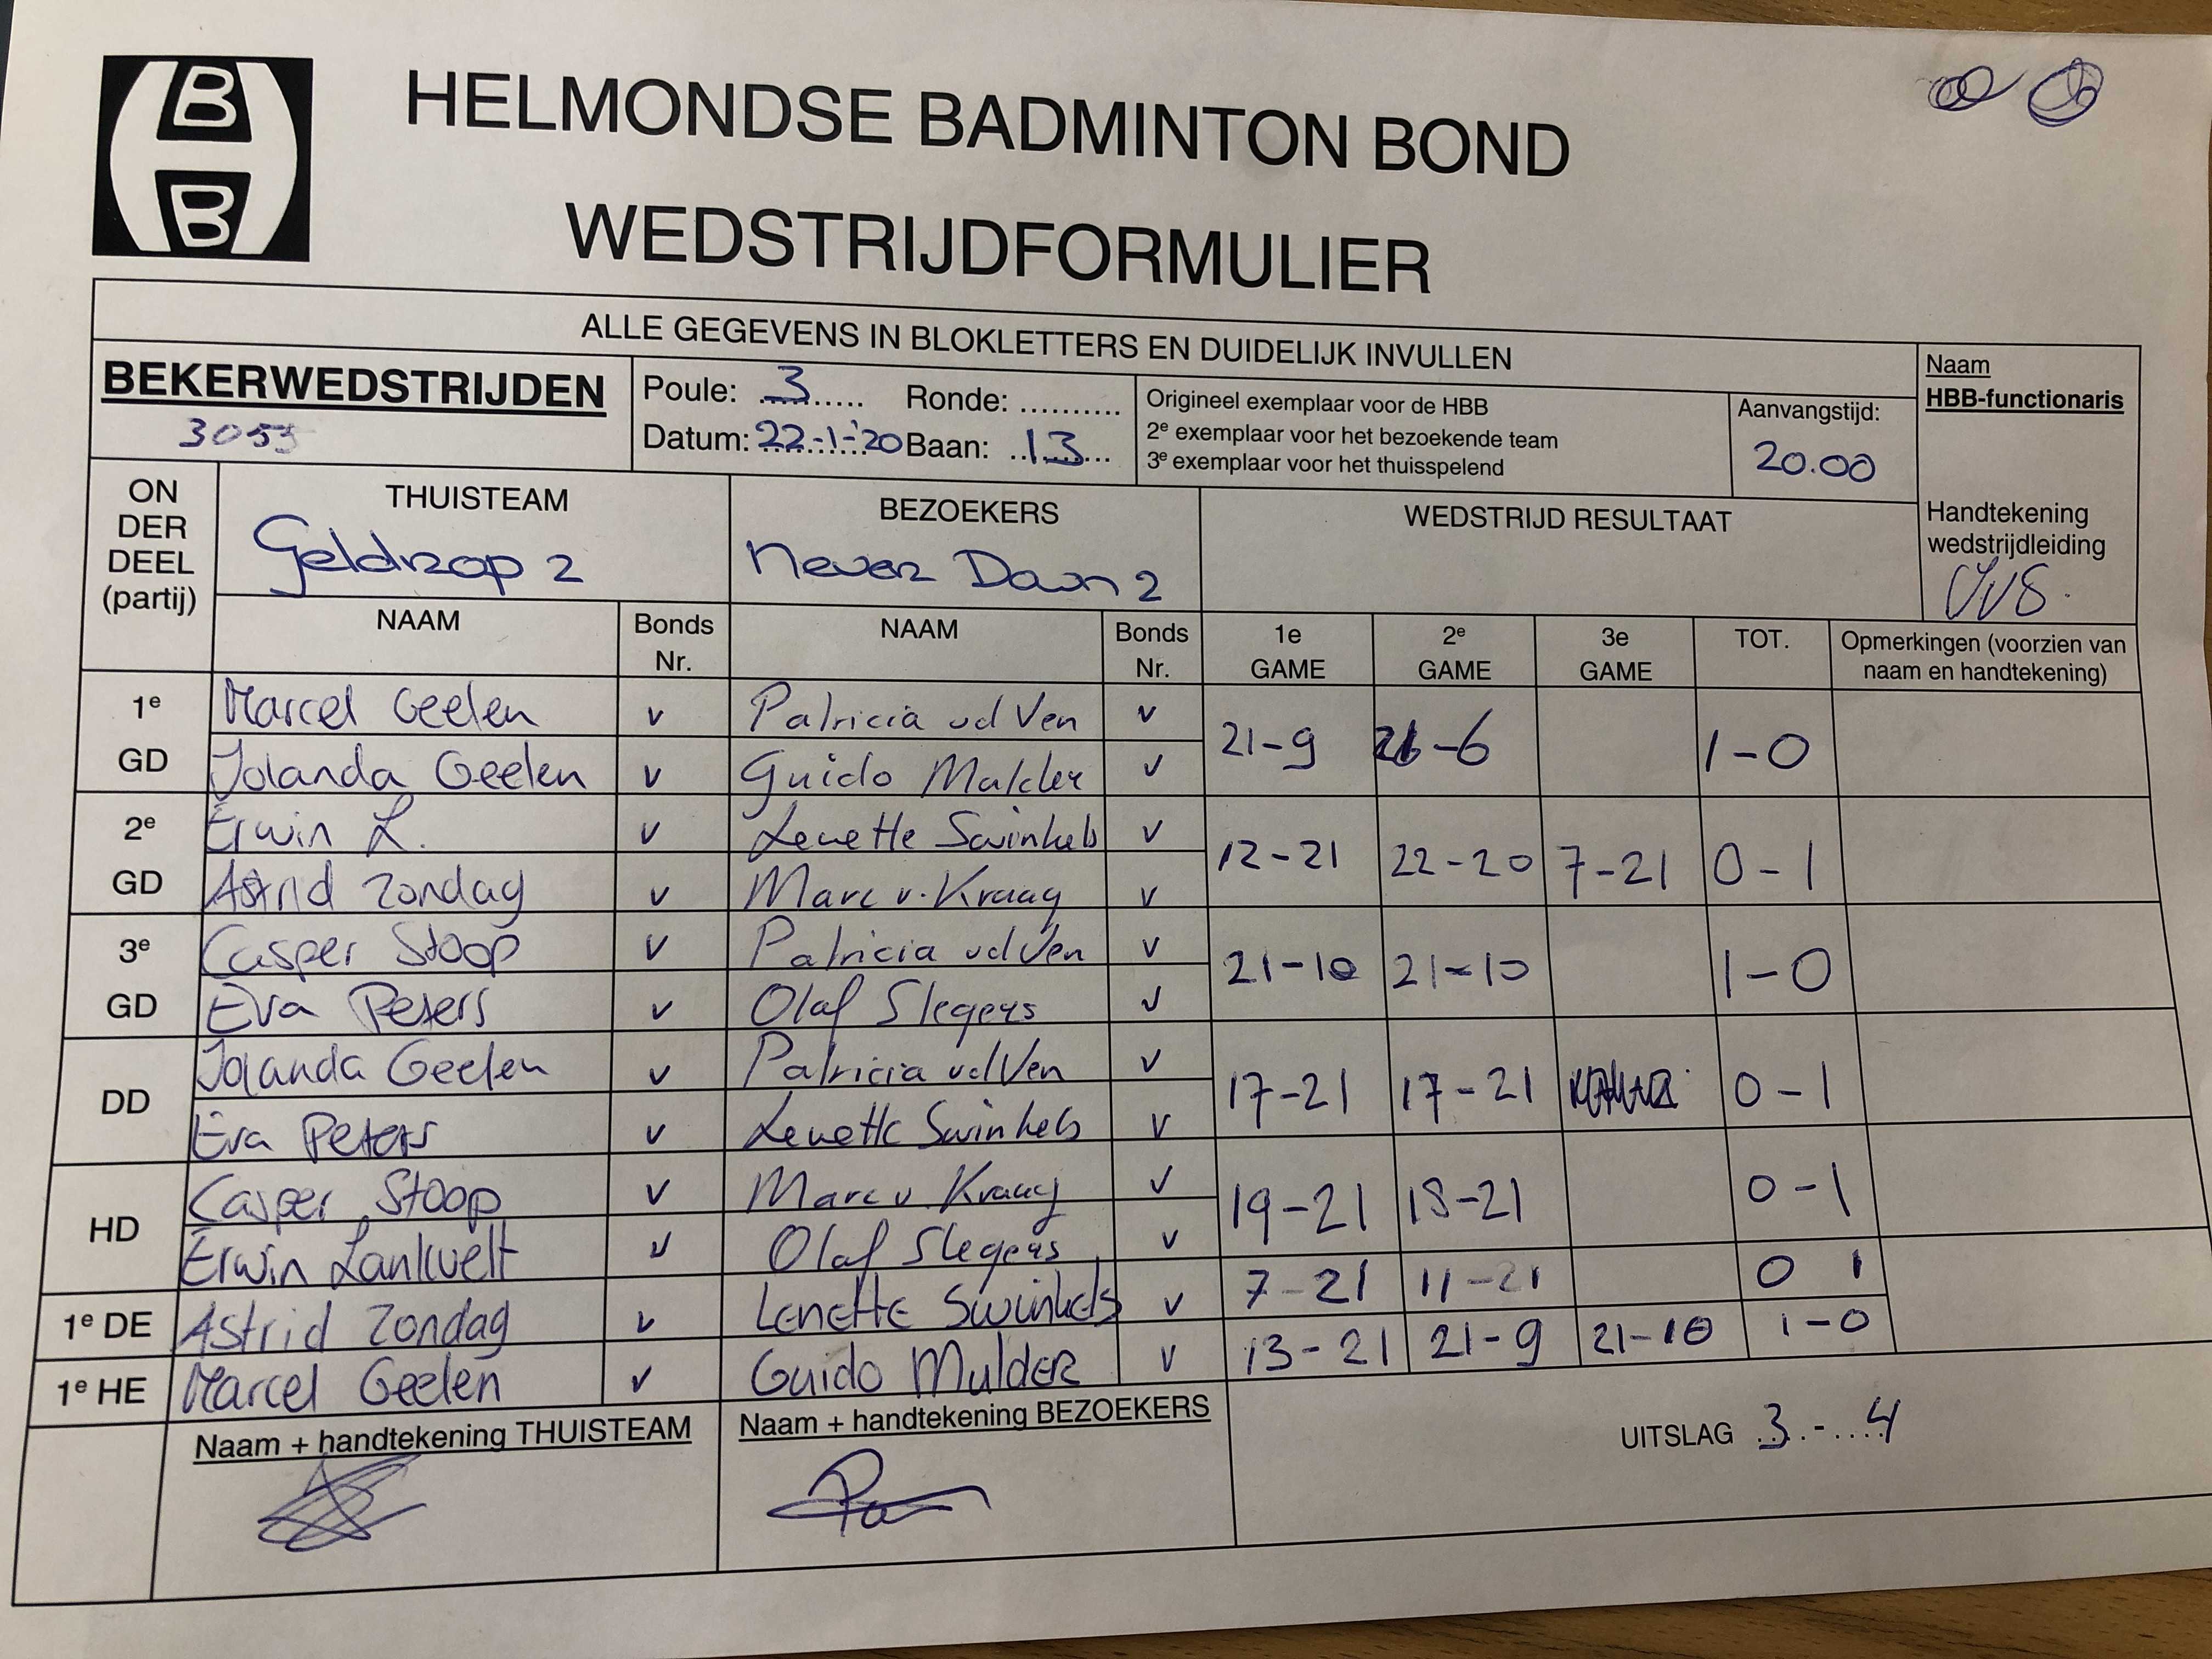 HBB
HELMONDSE BADMINTON BOND
WEDSTRIJDFORMULIER
ALLE GEGEVENS IN BLOKLETTERS EN DUIDELIJK INVULLEN
BEKERWEDSTRIJDEN
3055
Poule: 3 Ronde: ..........
Datum: 22-1-'20 Baan: 13
Origineel exemplaar voor de HBB
2e exemplaar voor het bezoekende team
3e exemplaar voor het thuisspelend
Aanvangstijd:
20.00
Naam
HBB-functionaris
Handtekening
wedstrijdleiding
ON
DER
DEEL
(partij)
THUISTEAM
Geldrop 2
BEZOEKERS
Never Down 2
WEDSTRIJD RESULTAAT
NAAM Bonds Nr. NAAM Bonds Nr. 1e GAME 2e GAME 3e GAME TOT. Opmerkingen (voorzien van naam en handtekening)
1e GD
Marcel Geelen v Patricia vd Ven v
Jolanda Geelen v Guido Mulder v
21-9 21-6 1-0
2e GD
Erwin L. v Lenette Swinkels v
Astrid Zondag v Marc v. Kraay v
12-21 22-20 7-21 0-1
3e GD
Casper Stoop v Patricia vd Ven v
Eva Peters v Olaf Slegers v
21-10 21-10 1-0
DD
Jolanda Geelen v Patricia vd Ven v
Eva Peters v Lenette Swinkels v
17-21 17-21 0-1
HD
Casper Stoop v Marc v. Kraay v
Erwin Lankvelt v Olaf Slegers v
19-21 18-21 0-1
1e DE Astrid Zondag v Lenette Swinkels v 7-21 11-21 0 1
1e HE Marcel Geelen v Guido Mulder v 13-21 21-9 21-10 1-0
Naam + handtekening THUISTEAM
Naam + handtekening BEZOEKERS
UITSLAG 3 - 4